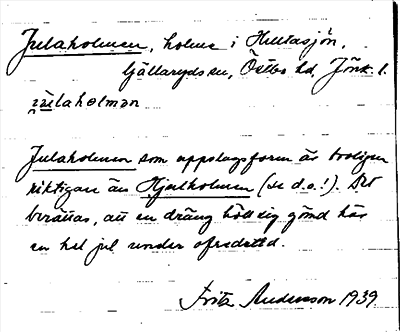 Julaholmen, holme i Hultasjön,
Gällaryds sn, Östbo hd, Jönk. l.
julaholman
Julaholmen som uppslagsform är troligen
riktigare än Hjulholmen (se d.o.!). Det
berättas, att en dräng höll sig gömd här
en hel jul under ofredstid.
Fritz Andersson 1939